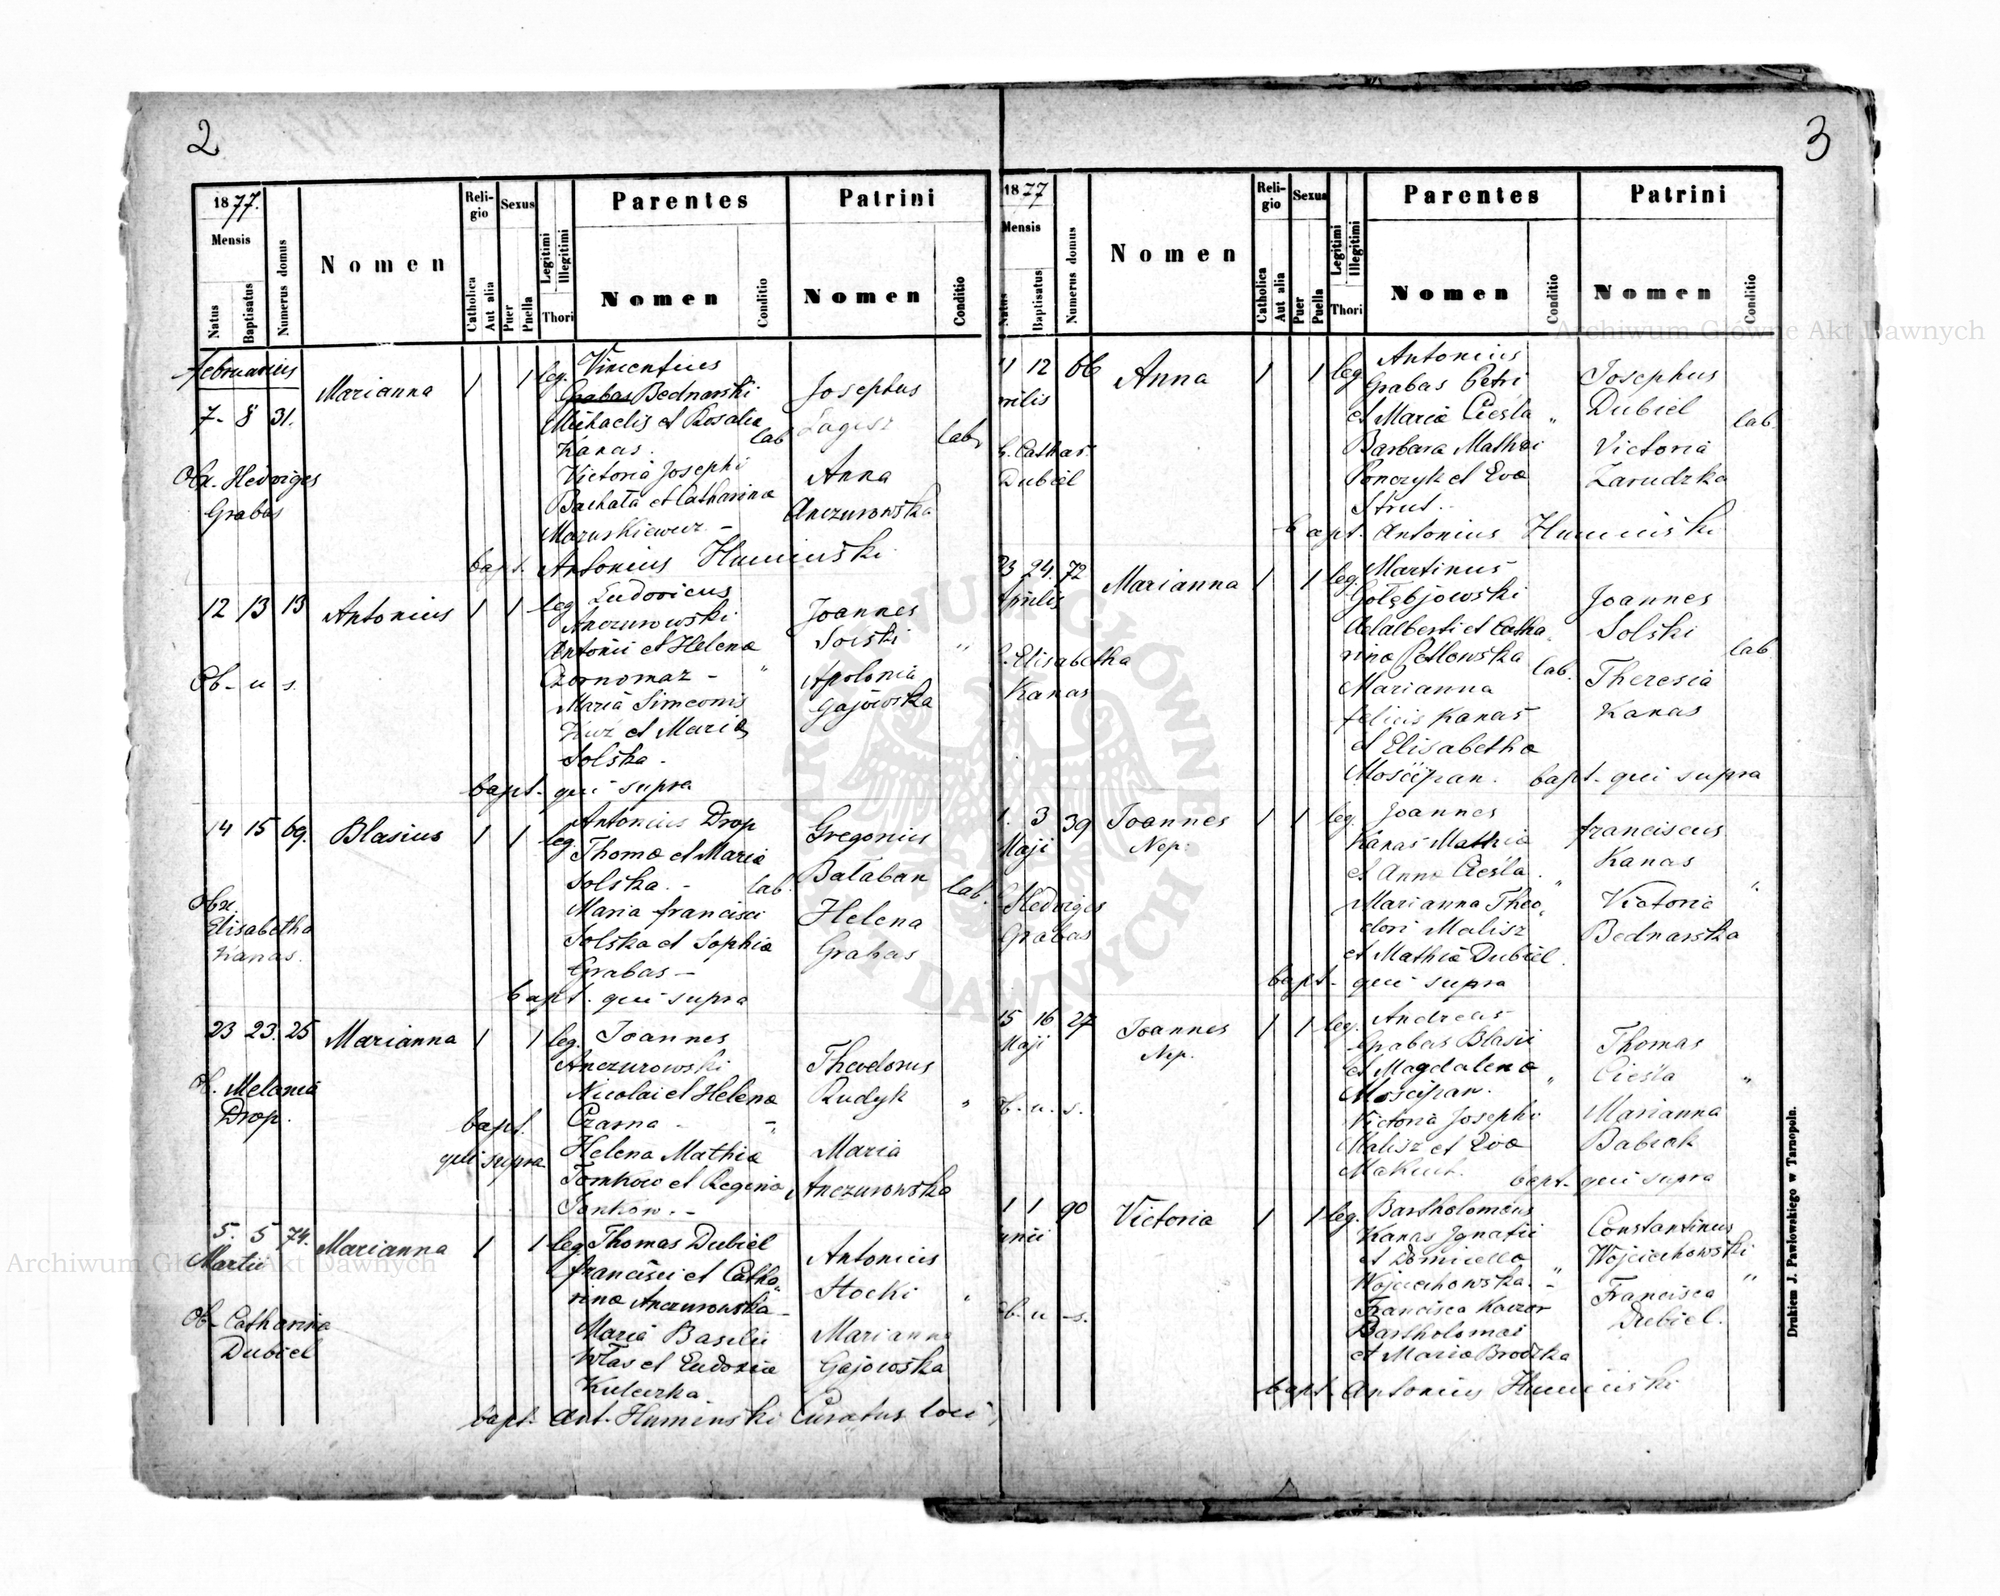 2
1877.
Mensis
Natus
Baptisatus
Numerus domus
Nomen
Religio
Catholica
Aut alia
Sexus
Puer
Puella
Legitimi
Illegitimi
Thori
Parentes
Nomen
Conditio
Patrini
Nomen
Conditio
Februarius
7 - 8 31.
Obx. Hedviges
Grabas
Marianna
1 1 leg.
Vincentius
Grabas Bednarski
Michaelis et Rosalia
Kanas.
Victoria Josephi
Bachata et Catharina
lab.
Josephus
Anna
Anczurowska
lab.
bapt. Antonius Huminski
12 13 13
Ob - u s.
Antonius
1 1 leg
Ludovicus
Anczurowski
Antonii et Helena
Czornomaz - "
Maria Simeonis
et Maria
Solska -
Joannes
Solski "
Apolonia
Gajowska
bapt. qui supra
14 15 69.
Obx.
Elisabetha
Kanas.
Blasius
1 1 leg.
Antonius Drop
Thomæ et Maria
Solska. - lab.
Maria francisci
Solska et Sophia
Grabas -
Gregorius
Bałaban lab.
Helena
Grabas
bapt. qui supra
23 23. 25
Ob. Melania
Drop.
Marianna
1 1 leg.
Joannes
Anczurowski
Nicolai et Helena
Czarna - "
Helena Mathiæ
Tomków et Regina
Theodorus
Rudyk "
Maria
Anczurowska
bapt.
qui supra
5. 5 74.
Martii
Ob - Catharina
Dubiel
Marianna
1 1 leg.
Thomas Dubiel
francisci et Catha
rina Anczurowska -
Maria Basilii
Własz et Eudoxia
Kulczka
Antonius
Stocki "
Marianna
Gajowska
bapt. Ant. Huminski Curatus loci
3
1877
Mensis
Natus
Baptisatus
Numerus domus
Nomen
Religio
Catholica
Aut alia
Sexus
Puer
Puella
Legitimi
Illegitimi
Thori
Parentes
Nomen
Conditio
Patrini
Nomen
Conditio
11 12 66
rilis
Cathar
Dubiel
Anna
1 1 leg
Antonius
Grabas Petri
et Maria Cieśla "
Barbara Mathei
Ponczyk et Eva
Strus..
Josephus
Dubiel lab.
Victoria
Zarudzka
bapt. Antonius Huminski
23 24. 72
Aprilis
Elisabetha
Kanas
Marianna
1 1 leg.
Martinus
Gołębjowski
Adalberti et Catha
rina Petlowska lab.
Marianna
felicis Kanas
et Elisabetha
Mościpan.
Joannes
Solski
lab.
Theresia
Kanas
bapt. qui supra
1. 3 39
Maji
Hedviges
Grabas
Joannes
Nep.
1 1 leg.
Joannes
Kanas Mathiæ
et Anna Cieśla "
Marianna Theo
dori Malisz
et Mathia Dubiel.
franciscus
Kanas "
Victoria
Bednarska
bapt. qui supra
15 16 27
Maji
Ob. u. s.
Joannes
Nep.
1 1 leg.
Andreas
Grabas Blasii
et Magdalena "
Mościpan.
Victoria Josephi
Malisz et Eva
Thomas
Cieśla "
Marianna
Babiak
bapt. qui supra
1 1 90
unii
Ob - u - s.
Victoria
1 1 leg.
Bartholomeus
Kanas Ignatii
et Domicella "
Wojciechowska. -
Francisca Kaczor
Bartholomæi
et Maria Brodzka
Constantinus
Wojciechowski "
Francisca
Dubiel.
bapt. Antonius Huminski
Drukiem J. Pawłowskiego w Tarnopolu.
Archiwum Główne Akt Dawnych
Archiwum Główne Akt Dawnych
ARCHIWUM GŁÓWNE AKT DAWNYCH